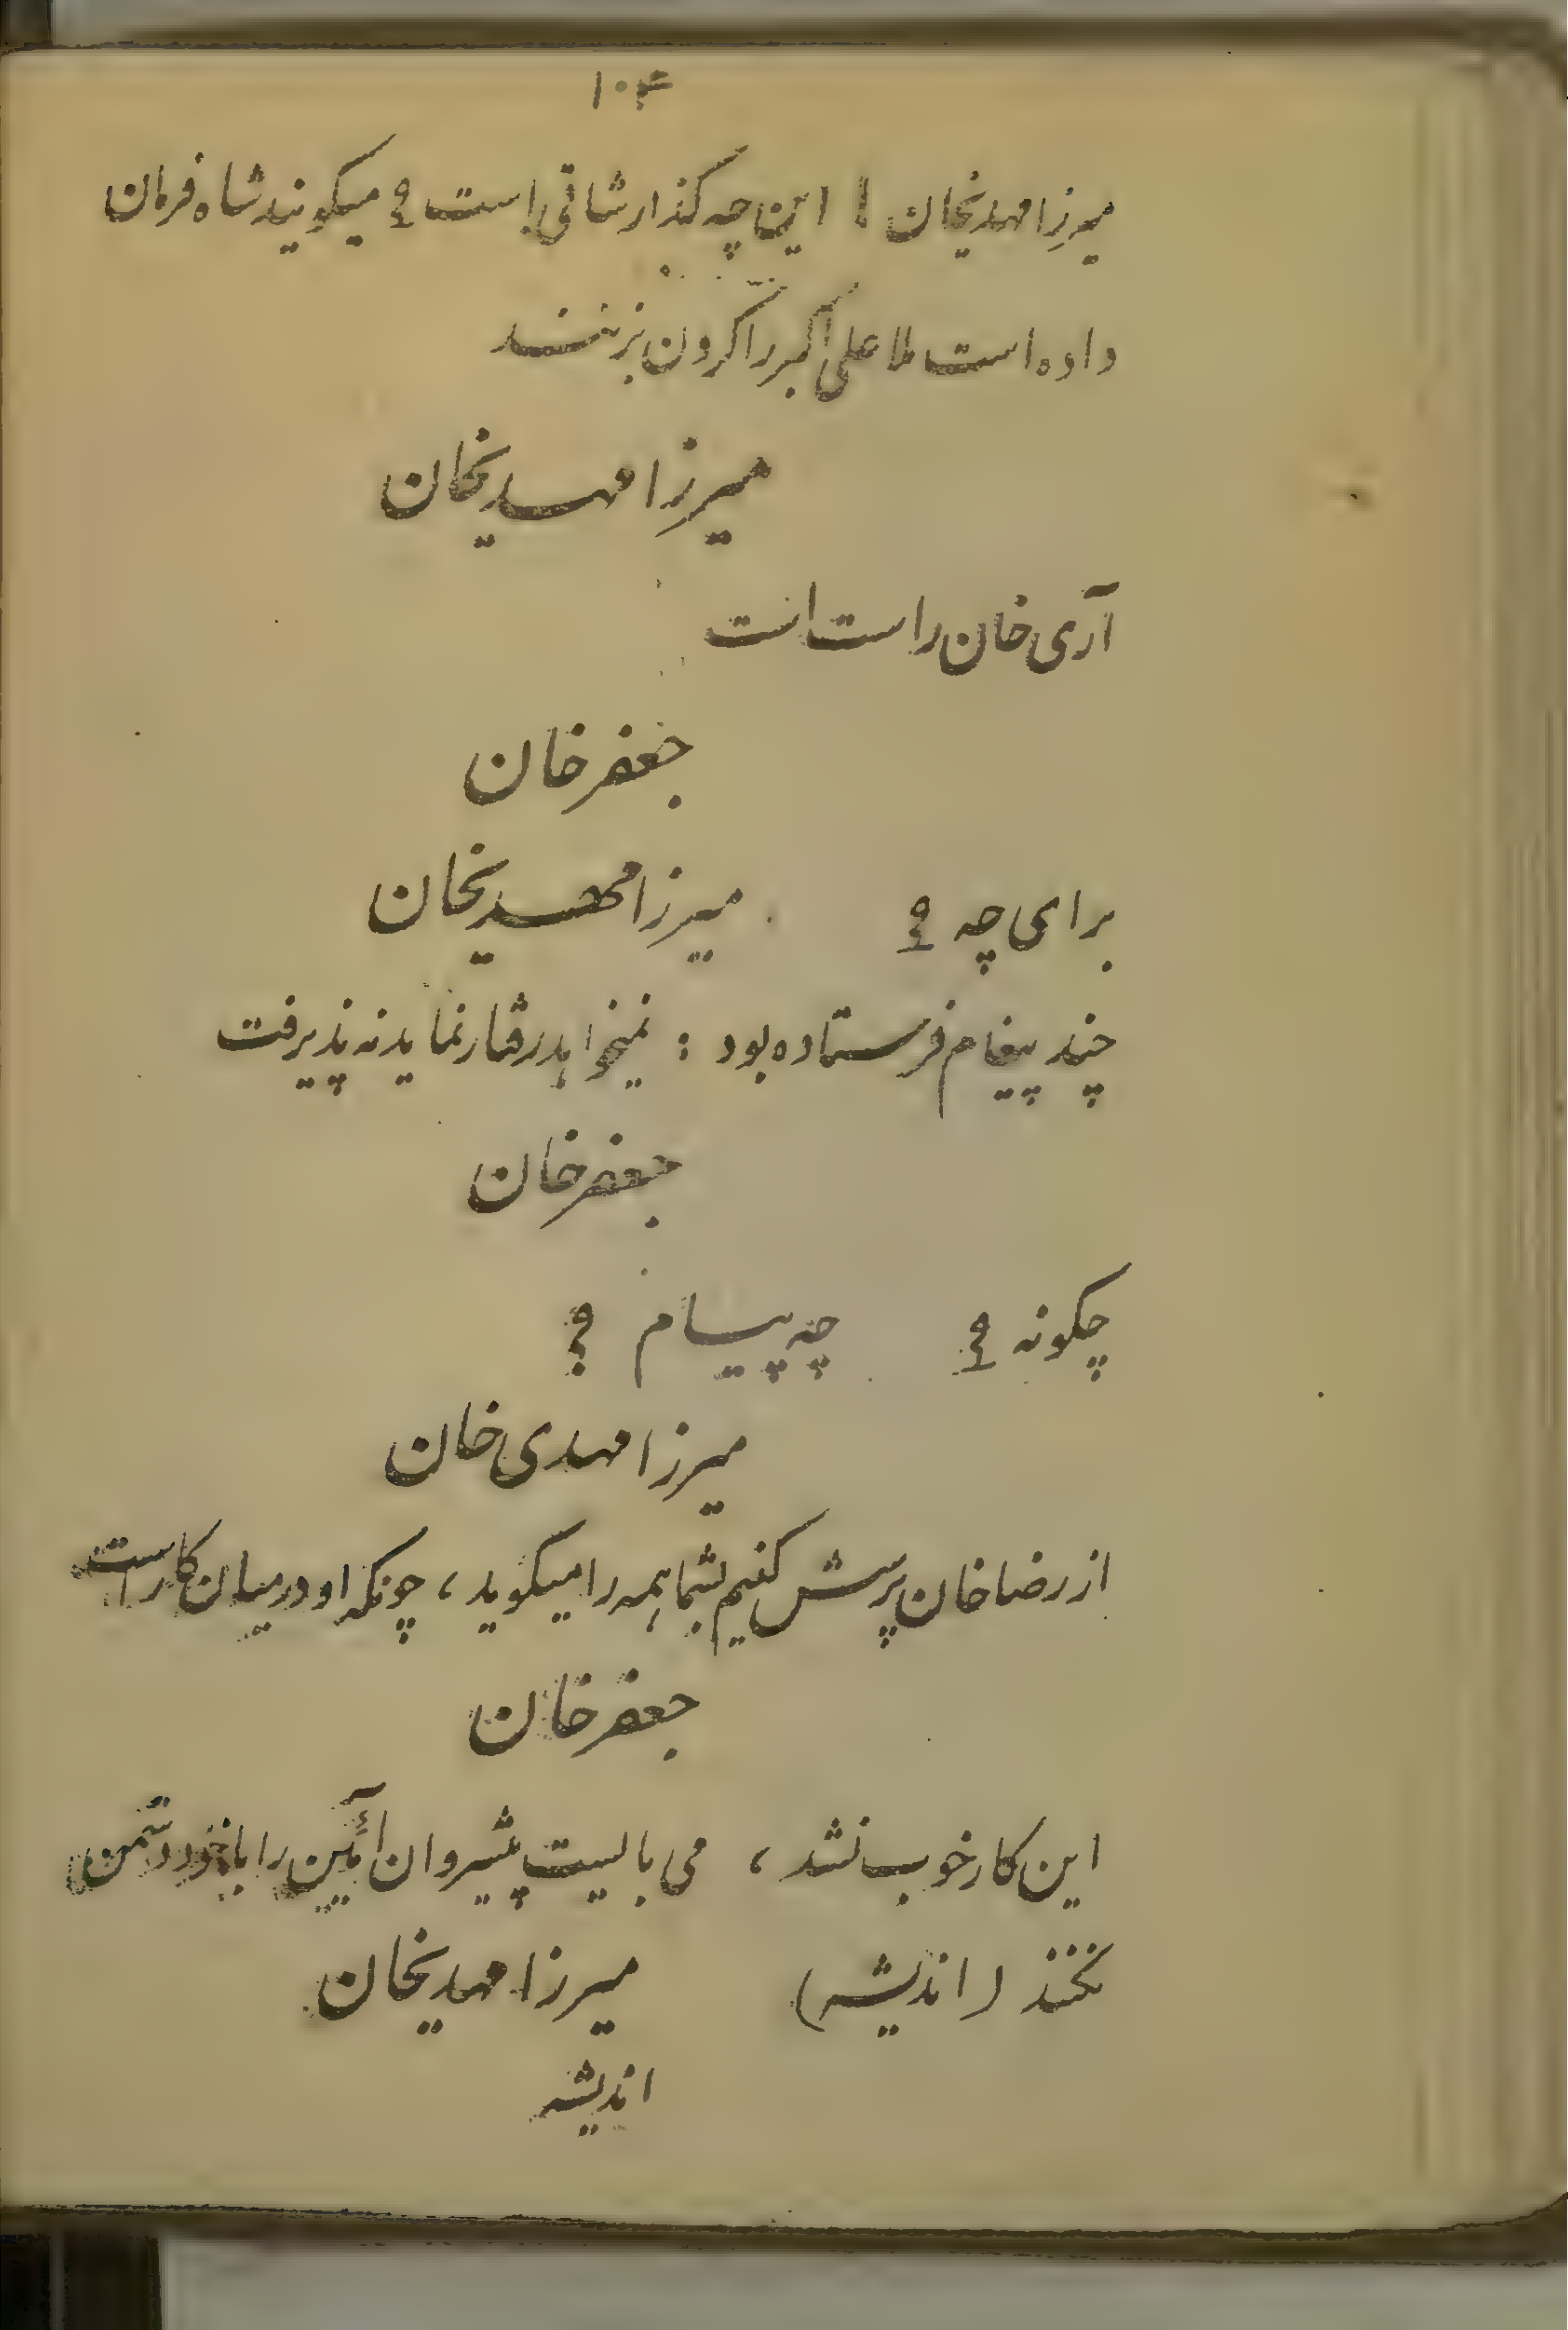 ۱۰۴
میرزا مهدیخان ! این چه گذارشاتی است ؟ میگویند شاه فرمان
داده است ملا علی اکبر را گردن بزنند
میرزا مهدیخان
آری خان راست است
جعفر خان
برای چه ؟ میرزا مهدیخان
چند پیغام فرستاده بود : نمیخواهد رفتار نماید نه پذیرفت
جعفر خان
چگونه ؟ چه پیام ؟
میرزا مهدی خان
از رضا خان پرسش کنیم بشما همه را میگوید ، چونکه او در میان کار است
جعفر خان
این کار خوب نشد ، می بایست پیشروان آئین را با خود دشمن
نکنند (اندیشه) میرزا مهدیخان
اندیشه